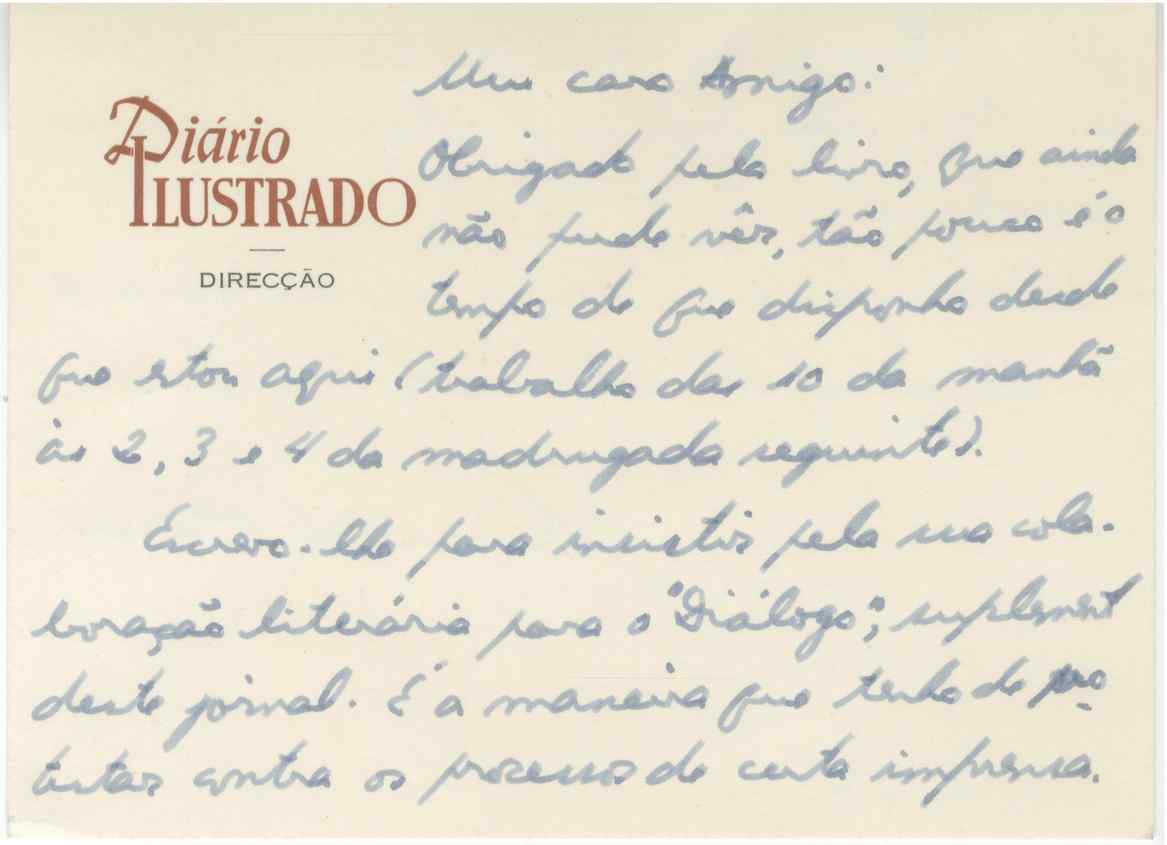 Diário
ILUSTRADO
DIRECÇÃO
Meu caro Amigo:
Obrigado pelo livro, que ainda
não pude vêr, tão pouco é o
tempo de que disponho desde
que estou aqui (trabalho das 10 da manhã
às 2, 3 e 4 da madrugada seguinte).
Escrevo-lhe para insistir pela sua cola-
boração literária para o "Diálogo", suplement
deste jornal. É a maneira que tenho de pro-
testar contra os processos de certa imprensa.